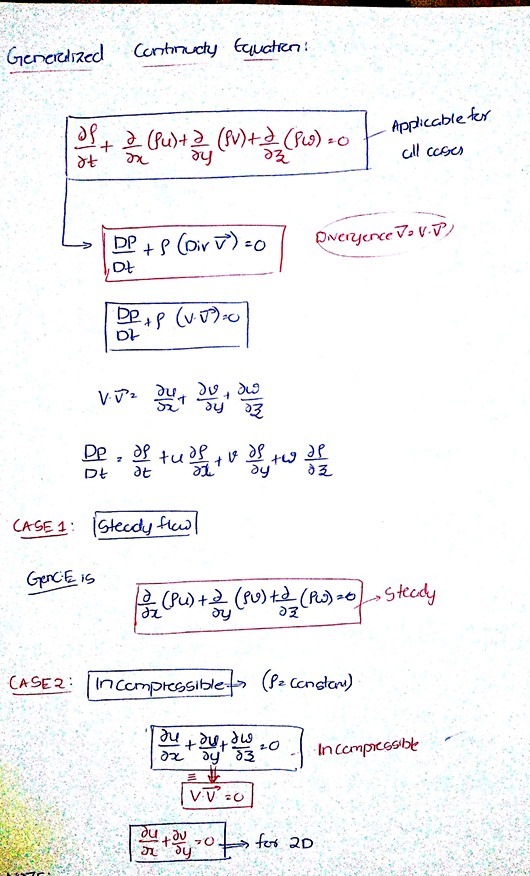 Generalized Continuity Equation:
∂ρ/∂t + ∂/∂x (ρu) + ∂/∂y (ρv) + ∂/∂z (ρw) = 0
Applicable for
all cases
Dρ/Dt + ρ (Div V⃗) = 0
Divergence V⃗ = ∇.V⃗
Dρ/Dt + ρ (∇.V⃗) = 0
∇.V⃗ = ∂u/∂x + ∂v/∂y + ∂w/∂z
Dρ/Dt = ∂ρ/∂t + u ∂ρ/∂x + v ∂ρ/∂y + w ∂ρ/∂z
CASE 1: Steady flow
Gen C.E is
∂/∂x (ρu) + ∂/∂y (ρv) + ∂/∂z (ρw) = 0 → Steady
CASE 2: Incompressible → (ρ = constant)
∂u/∂x + ∂v/∂y + ∂w/∂z = 0 Incompressible
≡ ⇓
∇.V⃗ = 0
∂u/∂x + ∂v/∂y = 0 → for 2D